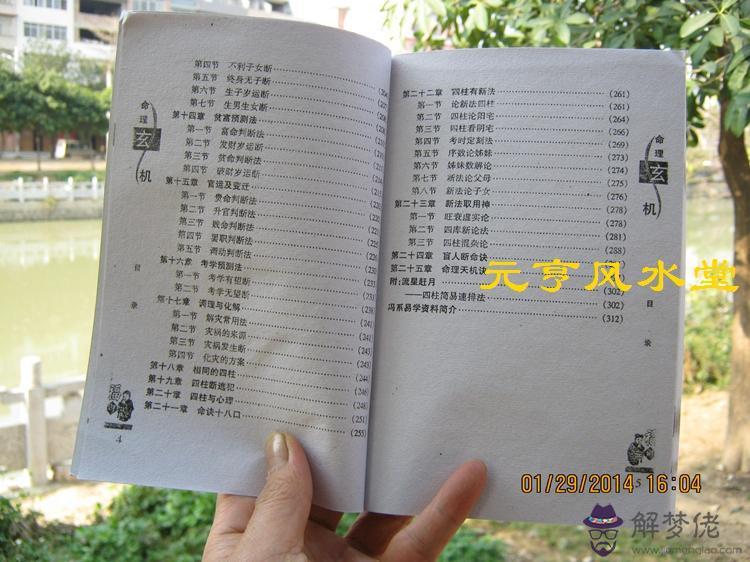 第四节 不利子女断
第五节 终身无子断
第六节 生子岁运断
第七节 生男生女断
第十四章 贫富预测法
第一节 富命判断法
第二节 发财岁运断
第三节 贫命判断法
第四节 破财岁运断
第十五章 官运及变迁
第一节 贵命判断法
第二节 升官判断法
第三节 贱命判断法
第四节 罢职判断法
第五节 调动判断法
第十六章 考学预测法
第一节 考学有望断
第二节 考学无望断
第十七章 调理与化解
第一节 解灾常用法
第二节 灾祸的来源 (241)
第三节 灾祸发生断 (243)
第四节 化灾的方案 (243)
第十八章 相同的四柱 (244)
第十九章 四柱断逃犯 (246)
第二十章 四柱与心理 (248)
第二十一章 命诀十八口 (251)
(255)
命理玄机
目录
福
4
第二十二章 四柱有新法 (261)
第一节 论新法四柱 (261)
第二节 四柱论阳宅 (264)
第三节 四柱看阴宅 (266)
第四节 考时定刻法 (269)
第五节 序数论姊妹 (273)
第六节 姊妹数解论 (274)
第七节 新法论父母 (275)
第八节 新法论子女 (276)
第二十三章 新法取用神 (278)
第一节 旺衰虚实论 (278)
第二节 四库新论法 (281)
第三节 四柱混杂论 (288)
第二十四章 盲人断命诀
第二十五章 命理天机诀
附:流星赶月 (302)
——四柱简易速排法 (302)
冯系易学资料简介 (312)
命理玄机
目录
5
元亨风水堂
01/29/2014 16:04
解梦佬
www.jiemenglao.com